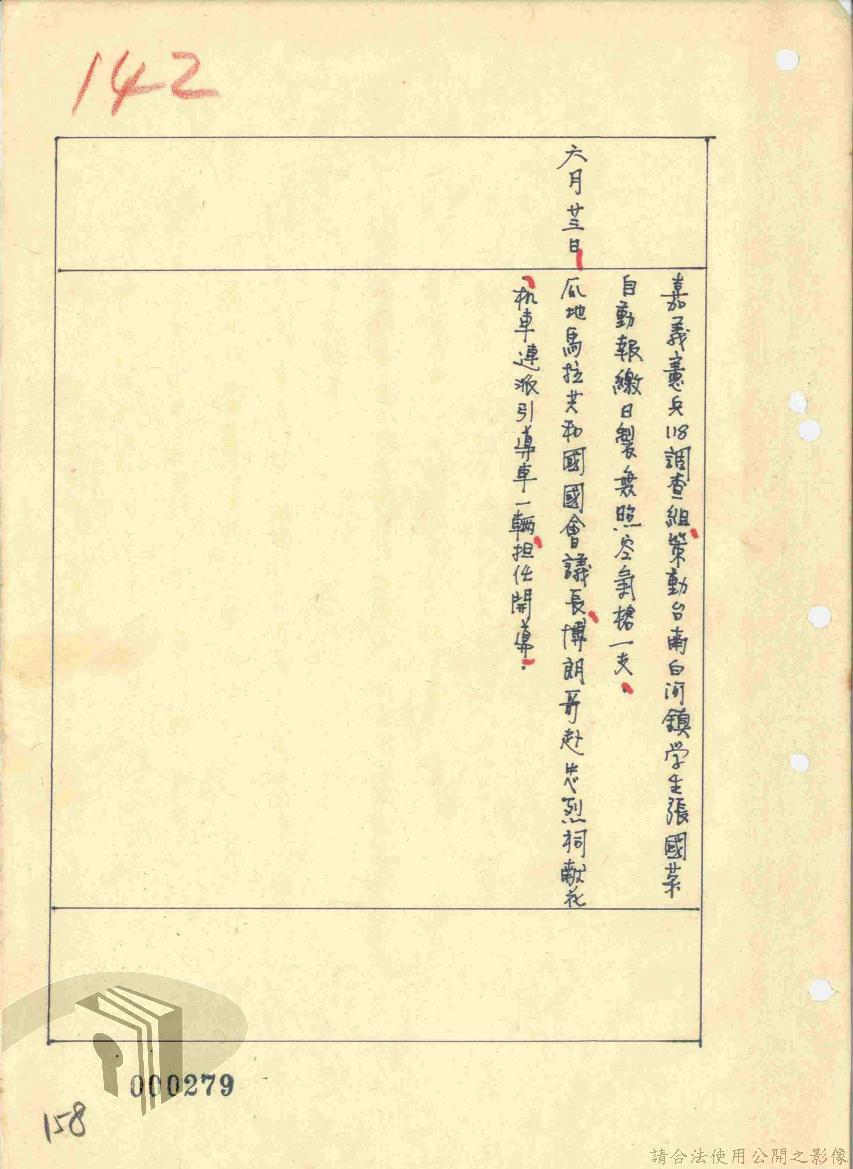 142
嘉義憲兵118調查組、策動台南白河鎮学生張國荣
自動報繳日製無照空氣槍一支.
六月廿三日
瓜地馬拉共和國國會議長、博朗哥赴忠烈祠献花
、机車連派引導車一輛、担任開導.
000279
158
請合法使用公開之影像